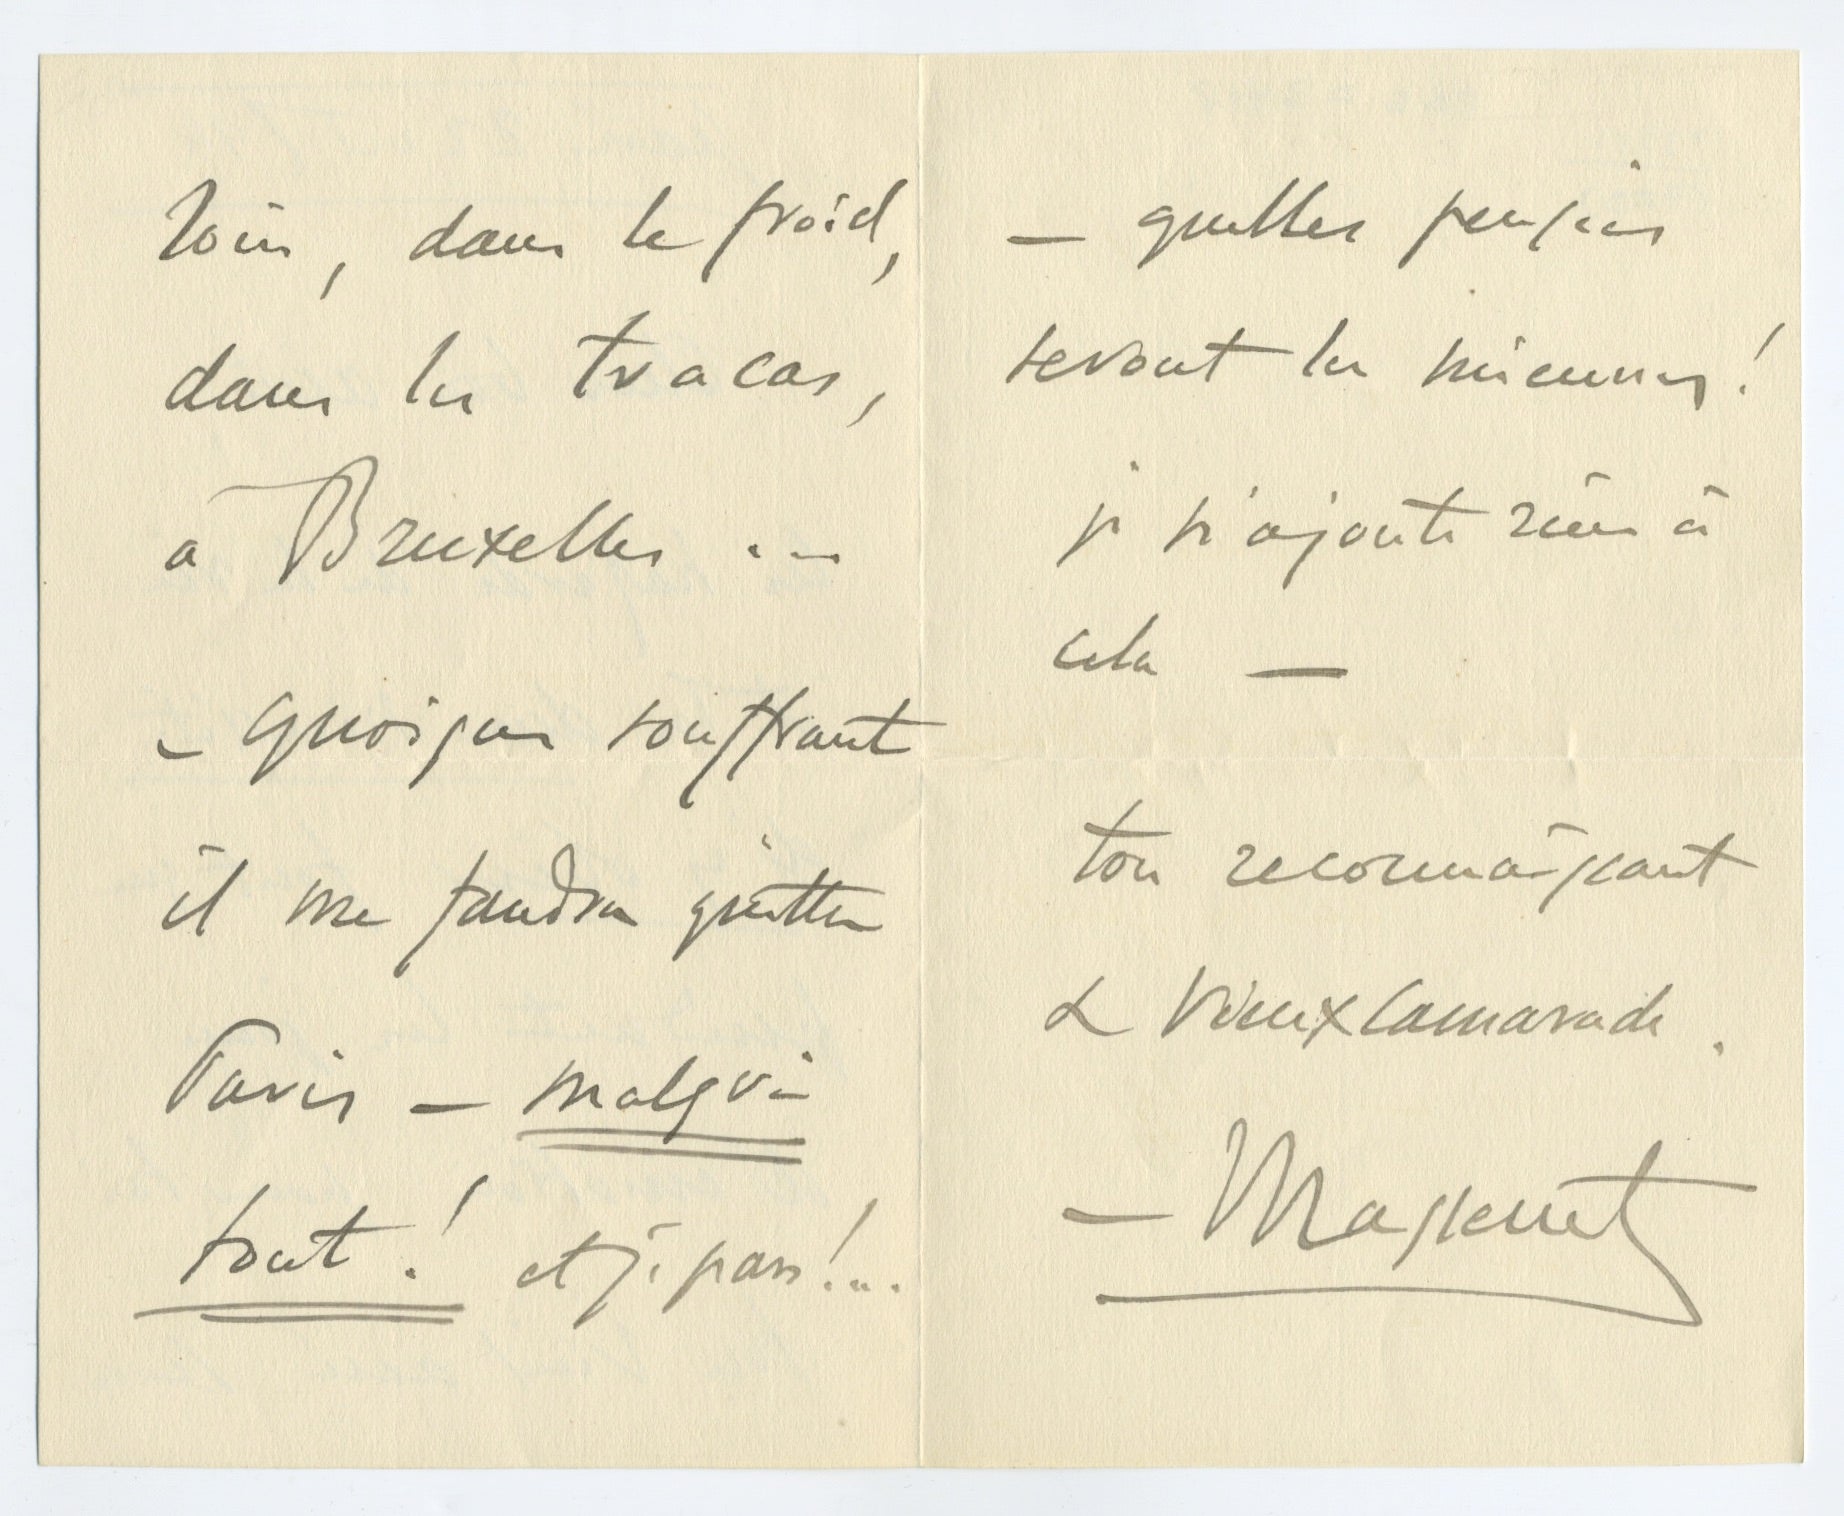 loin, dans le froid,
dans les tracas,
à Bruxelles ...
- quoique souffrant
il me faudra quitter
Paris - malgré
tout ! et je pars !...
- quelles pensées
seront les miennes !
je n'ajoute rien à
cela —
ton reconnaissant
& vieux Camarade.
- Massenet